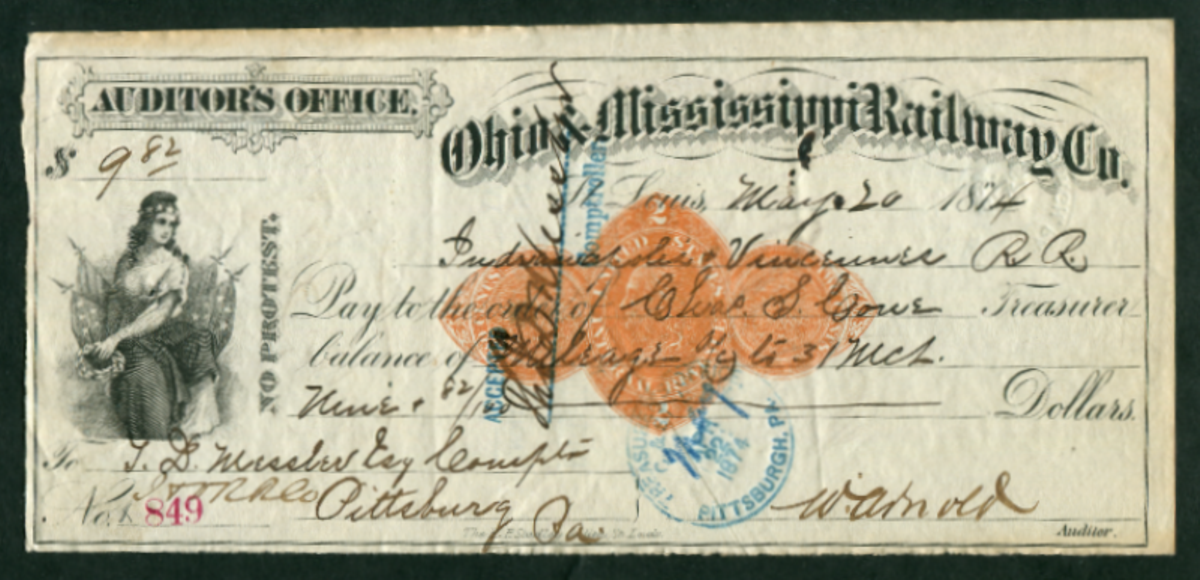 AUDITOR'S OFFICE.
Ohio & Mississippi Railway Co.
$ 9 82
St Louis, May 20 1874
Indianapolis & Vincennes R.R.
Pay to the order of Chas. S. Treasurer
balance of Mileage to 31 Mch.
Nine & 82/100 Dollars.
NO PROTEST.
ACCEPTED
Comptroller
To T. D. Messler Esq Compt
Pittsburg Pa
No. 849
TREASU
1874
PITTSBURGH, PA
W. Arnold
Auditor.
2
2